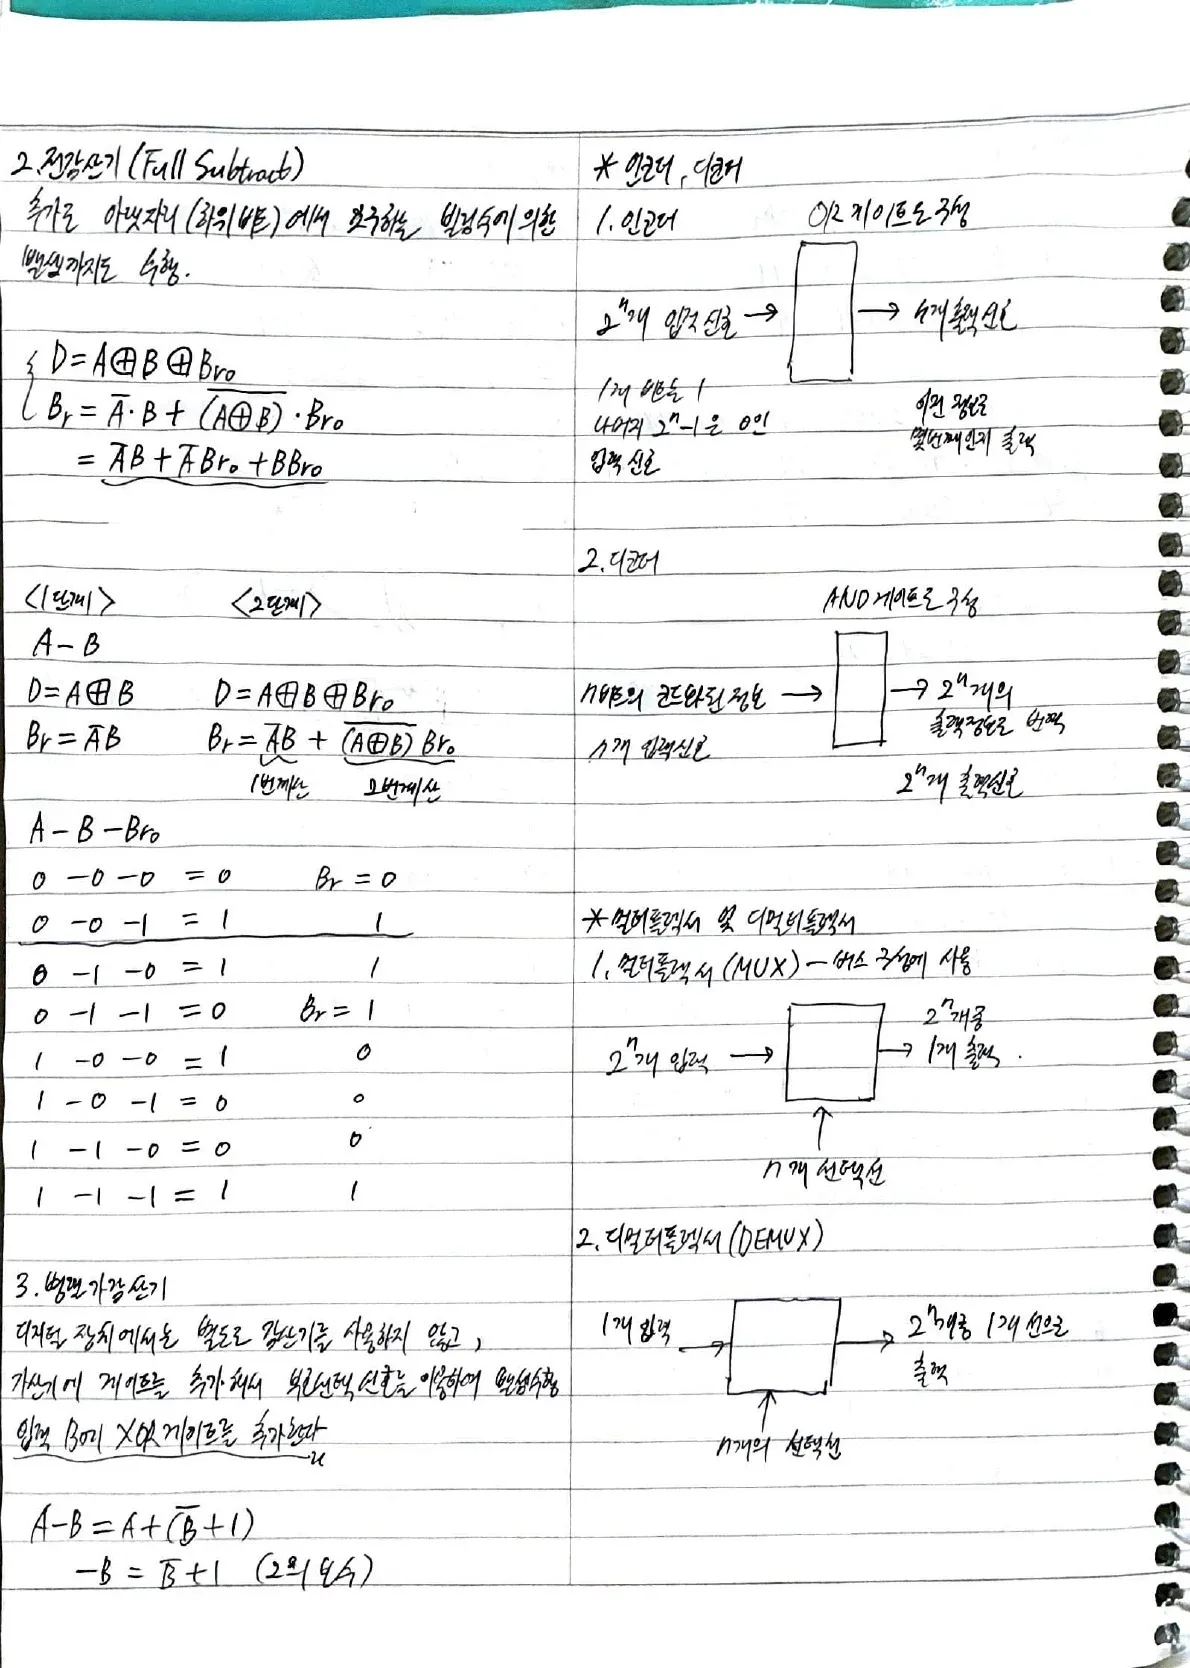 2. 전감산기 (Full Subtract)
추가로 아랫자리 (하위 비트)에서 요구하는 빌림수에 의한
뺄셈까지도 수행.
D = A⊕B⊕Br₀
Br = A̅·B + (A⊕B)̅·Br₀
= A̅B + A̅Br₀ + BBr₀
<1단계> <2단계>
A - B
D = A⊕B D = A⊕B⊕Br₀
Br = A̅B Br = A̅B + (A⊕B)̅ Br₀
1번계산 2번계산
A - B - Br₀
0 - 0 - 0 = 0 Br = 0
0 - 0 - 1 = 1 1
0 - 1 - 0 = 1 1
0 - 1 - 1 = 0 Br = 1
1 - 0 - 0 = 1 0
1 - 0 - 1 = 0 0
1 - 1 - 0 = 0 0
1 - 1 - 1 = 1 1
3. 병렬가감산기
디지털 장치에서는 별도로 감산기를 사용하지 않고,
가산기에 게이트를 추가해서 부호선택 신호를 이용하여 뺄셈수행
입력 B에 XOR게이트를 추가한다
A - B = A + (B̅ + 1)
-B = B̅ + 1 (2의 보수)
* 인코더, 디코더
1. 인코더 OR 게이트로 구성
2ⁿ개 입력 신호 → → n개 출력 신호
1개 비트는 1
나머지 2ⁿ-1은 0인
입력 신호
이진 정보로
몇번째인지 출력
2. 디코더
AND 게이트로 구성
n비트의 코드화된 정보 → → 2ⁿ개의
출력정보로 번역
n개 입력신호
2ⁿ개 출력신호
* 멀티플렉서 및 디멀티플렉서
1. 멀티플렉서 (MUX) - 버스 구성에 사용
2ⁿ개 입력 → → 2ⁿ개중
1개 출력.
↑
n개 선택선
2. 디멀티플렉서 (DEMUX)
1개 입력 → → 2ⁿ개중 1개 선으로
출력
↑
n개의 선택선